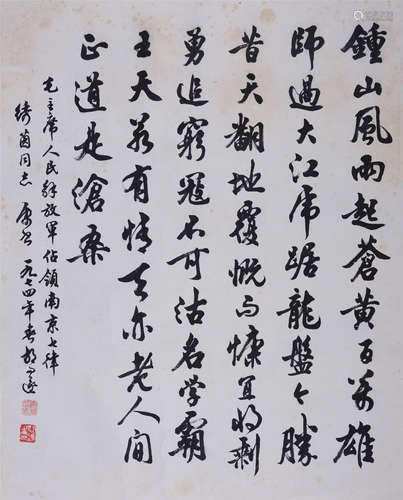 鍾山風雨起蒼黃百萬雄
師過大江虎踞龍盤今勝
昔天翻地覆慨而慷宜將剩
勇追窮寇不可沽名學霸
王天若有情天亦老人間
正道是滄桑
毛主席人民解放軍佔領南京七律
同志 一九七四年春